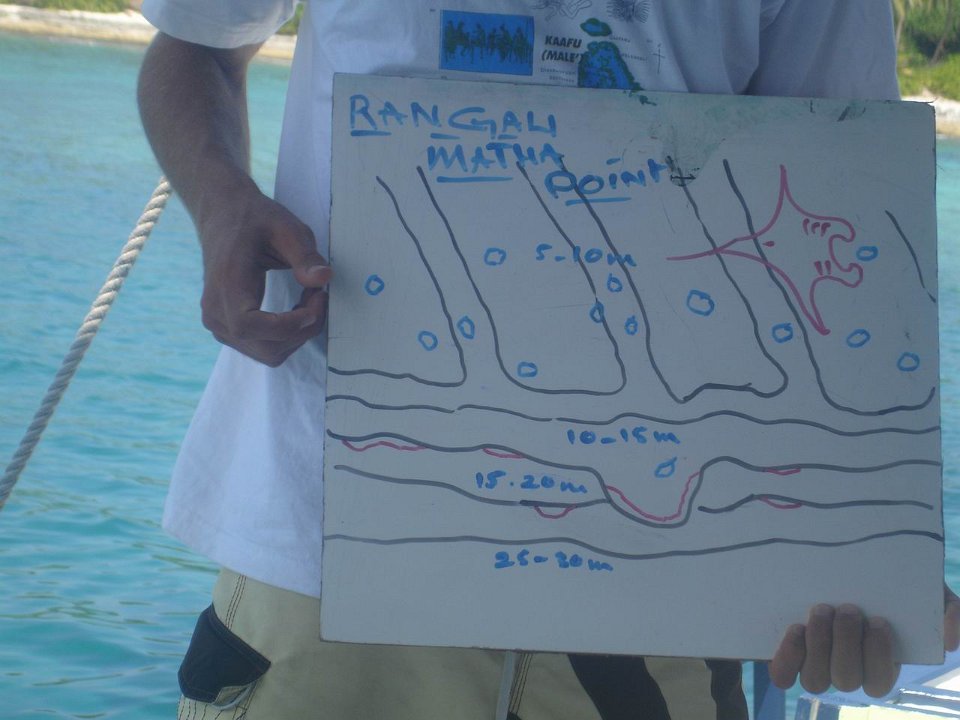 KAAFU
(MALE')
RANGALI
MATHA
POINT
5-10m
10-15m
15-20m
25-30m